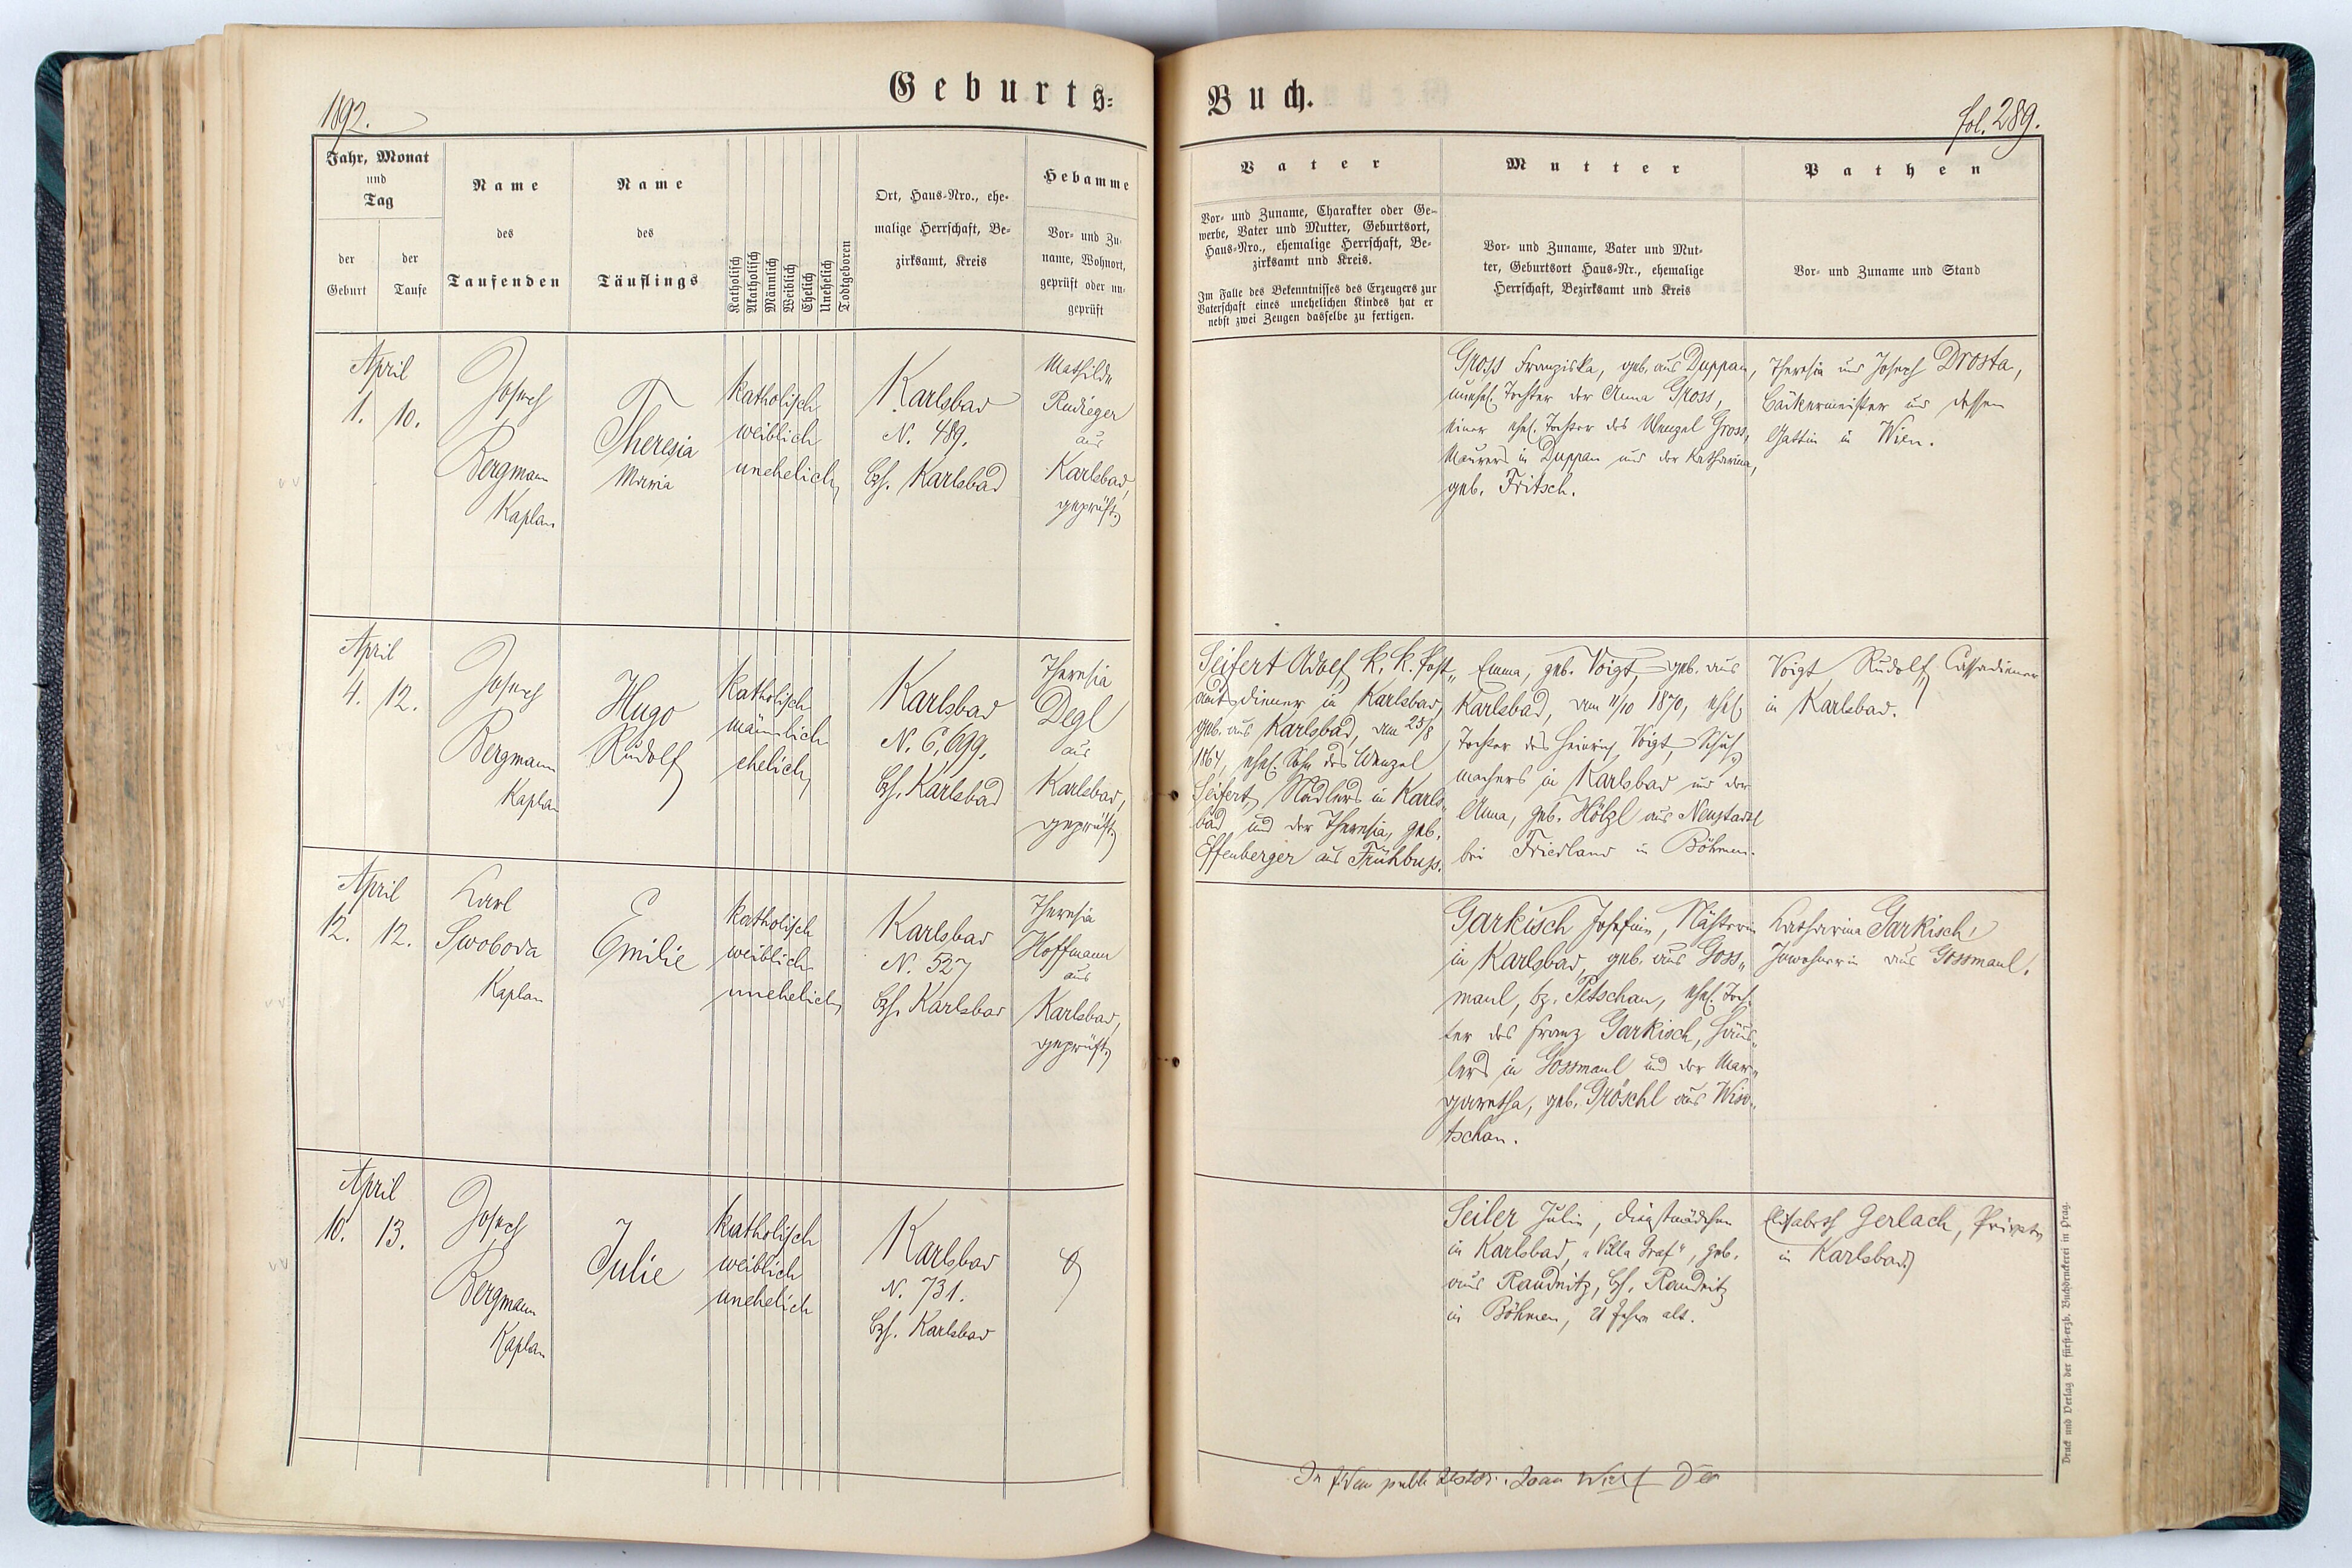 Geburts-
Buch.
1892.
fol. 289.
Jahr, Monat
und
Tag
der
Geburt
der
Taufe
Name
des
Taufenden
Name
des
Täuflings
Katholisch
Akatholisch
Männlich
Weiblich
Ehelich
Unehelich
Todtgeboren
Ort, Haus-Nro., ehe-
malige Herrschaft, Be-
zirksamt, Kreis
Hebamme
Vor- und Zu-
name, Wohnort,
geprüft oder un-
geprüft
Vater
Vor- und Zuname, Charakter oder Ge-
werbe, Vater und Mutter, Geburtsort,
Haus-Nro., ehemalige Herrschaft, Be-
zirksamt und Kreis.
Im Falle des Bekenntnisses des Erzeugers zur
Vaterschaft eines unehelichen Kindes hat er
nebst zwei Zeugen dasselbe zu fertigen.
Mutter
Vor- und Zuname, Vater und Mut-
ter, Geburtsort Haus-Nr., ehemalige
Herrschaft, Bezirksamt und Kreis
Pathen
Vor- und Zuname und Stand
April
1.
10.
Josef
Bergmann
Kaplan
Theresia
Maria
katholisch
weiblich
unehelich
Karlsbad
N. 489.
Bzh. Karlsbad
Mathilde
Rudieger
aus
Karlsbad,
geprüft.
Gross Franziska, geb. aus Duppau,
unehel. Tochter der Anna Gross,
einer ehel. Tochter des Wenzel Gross,
Maurers in Duppau und der Katharina,
geb. Fritsch.
Theresia und Josef Drosta,
Bäckermeister und dessen
Gattin in Wien.
April
4.
12.
Josef
Bergmann
Kaplan
Hugo
Rudolf
katholisch
männlich
ehelich
Karlsbad
N. 6,699.
Bzh. Karlsbad
Theresia
Degl
aus
Karlsbad,
geprüft.
Seifert Adolf, k. k. Post„
amtsdiener in Karlsbad,
geb. aus Karlsbad, am 25/8
1864, ehel. Sohn des Wenzel
Seifert, Nadlers in Karls„
bad und der Theresia, geb.
Effenberger aus Frühbuss.
Emma, geb. Voigt, geb. aus
Karlsbad, am 11/10 1870, ehel.
Tochter des Heinrich Voigt, Schuh„
machers in Karlsbad und der
Anna, geb. Hölzl aus Neustadtl
bei Friedland in Böhmen.
Voigt Rudolf, Cassadiener
in Karlsbad.
April
12.
12.
Karl
Swoboda
Kaplan
Emilie
katholisch
weiblich
unehelich
Karlsbad
N. 527
Bzh. Karlsbad
Theresia
Hoffmann
aus
Karlsbad,
geprüft
Garkisch Josefine, Nähterin
in Karlsbad, geb. aus Goss„
maul, bz. Petschau, ehel. Toch„
ter des Franz Garkisch, Häus„
lers in Gossmaul und der Mar„
garetha, geb. Gröschl aus Wisd„
tschau.
Katharina Garkisch,
Inwohnerin aus Gossmaul.
April
10.
13.
Josef
Bergmann
Kaplan
Julie
katholisch
weiblich
unehelich
Karlsbad
N. 731.
Bzh. Karlsbad
Seiler Julie, Dienstmädchen
in Karlsbad, „Villa Graf“, geb.
aus Raudnitz, Bzh. Raudnitz
in Böhmen, 21 Jahre alt.
Elisabeth Gerlach, Private
in Karlsbad.
In fidem publ.
Druck und Verlag der fürst-erzb. Buchdruckerei in Prag.